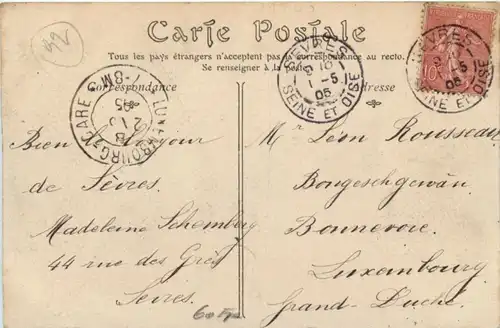 49
Carte Postale
Tous les pays étrangers n'acceptent pas la correspondance au recto.
Se renseigner à la poste.
Correspondance
Adresse
SÈVRES
1 -5
05
SEINE ET OISE
SÈVRES
-5
05
SEINE ET OISE
10
LUXEMBOURG-GARE
7-8 M
Bien le bonjour
de Sèvres.
Madeleine Schemberg
44 rue des Grès
Sèvres.
Mr Léon Rousseau
Bongeschgewän
Bonnevoie.
Luxembourg
Grand-Duché.